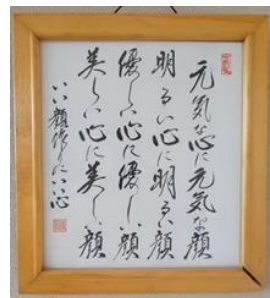 元気な心に元気な顔
明るい心に明るい顔
優しい心に優しい顔
美しい心に美しい顔
いい顔作りにいい心